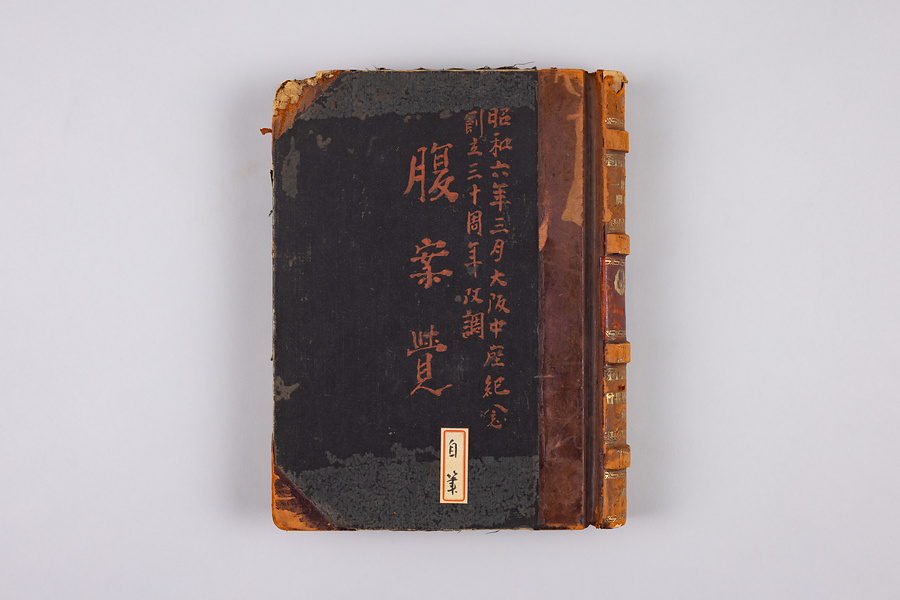 昭和六年三月大阪中座紀念
創立三十周年改調
腹案覺
自筆